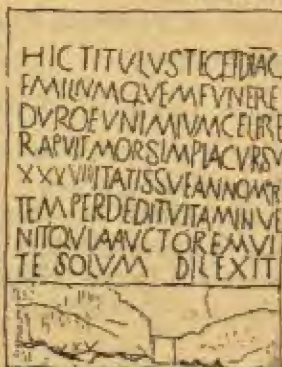 HIC TITVLVS TEGET DIAC
EMILIVM QVEM FVNERE
DVRO EVNIMIVM CELERE
RAPVIT MORS IMPIA CVRSV
XXXVIII ITATIS SVE ANNO MOR
TEM PERDEDIT VITAM INVE
NIT QVIA AVCTOREM VI
TE SOLVM DILEXIT